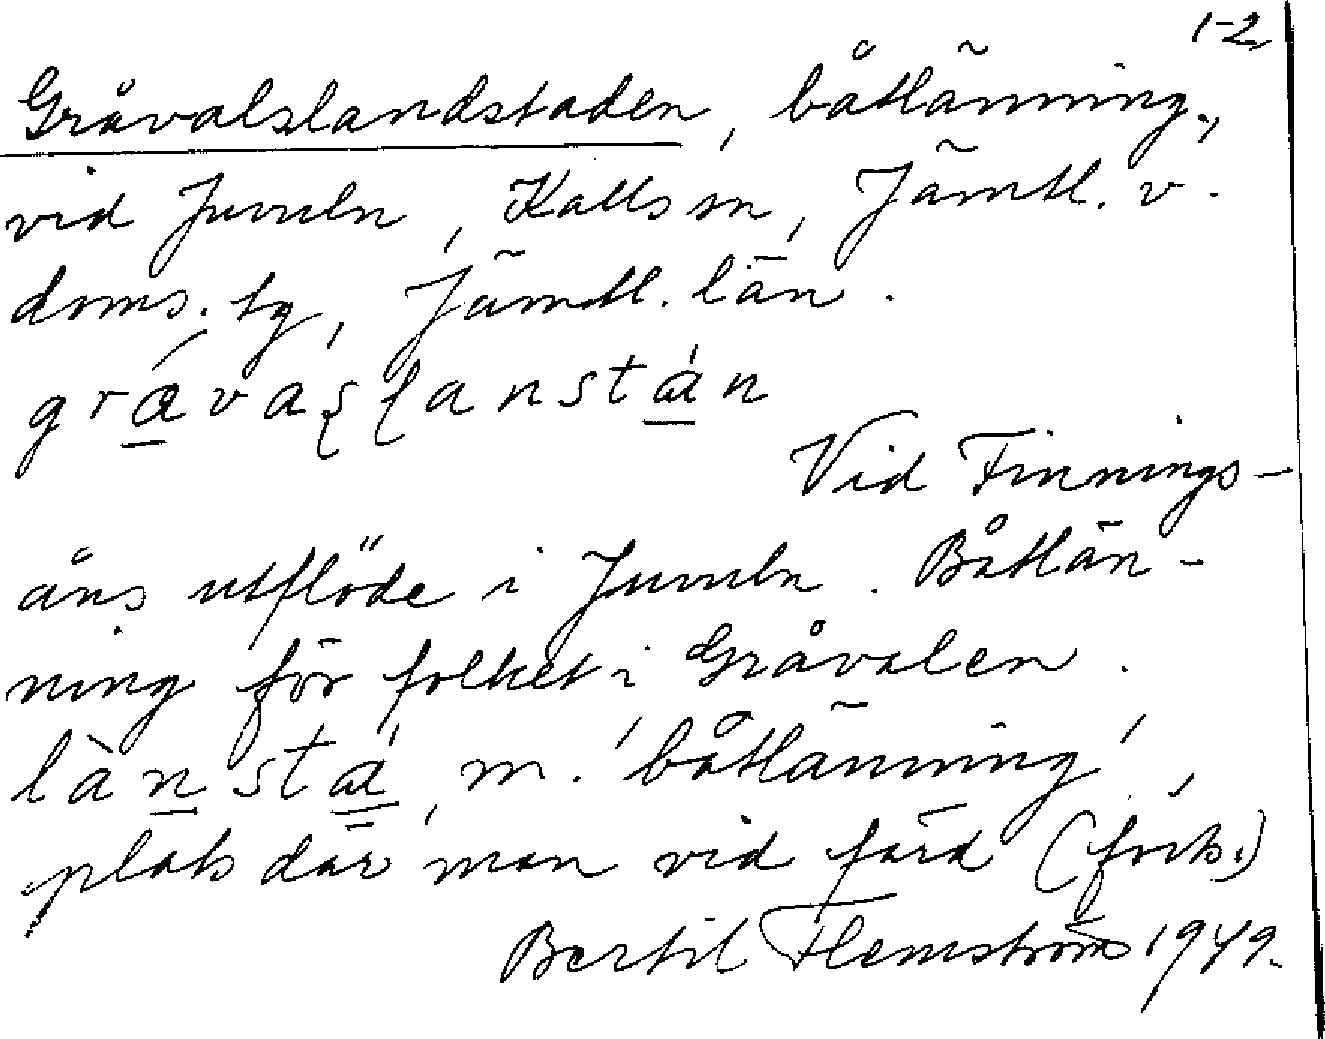 1-2
Gråvalslandstaden, båtlänning,
vid Juvuln, Kalls sn, Jämtl. v.
doms. tg, Jämtl. län.
Vid Finnings-
åns utflöde i Juvuln. Båtlän-
ning för folket i Gråvalen.
m. 'båtlänning',
plats där man vid färd (forts.)
Bertil Flemström 1949.